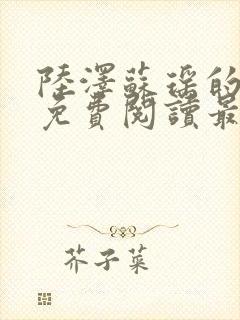 陸澤蘇瑶的
免費閱讀最
芥子菜